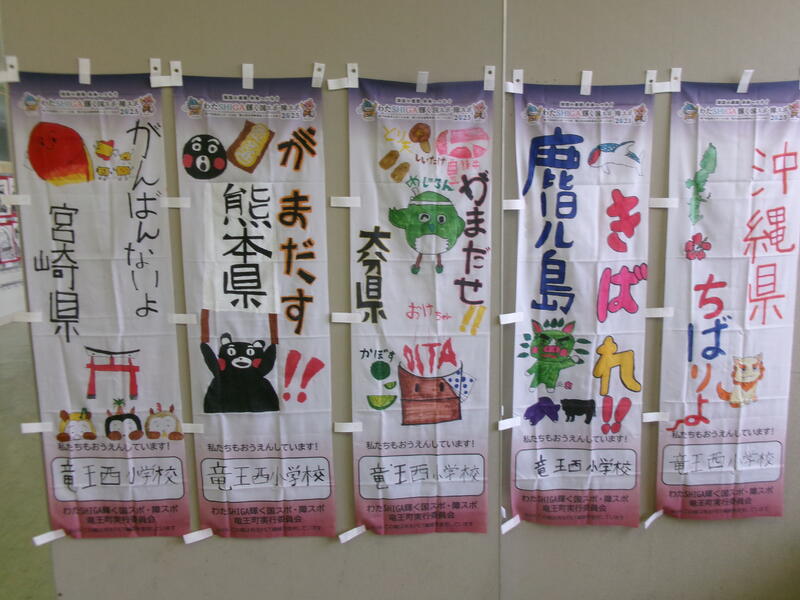 わたSHIGA輝く国スポ・障スポ
2025
がんばんないよ
宮崎県
私たちもおうえんしています!
竜王西小学校
わたSHIGA輝く国スポ・障スポ
竜王町実行委員会
わたSHIGA輝く国スポ・障スポ
2025
がまだす!!
熊本県
私たちもおうえんしています!
竜王西小学校
わたSHIGA輝く国スポ・障スポ
竜王町実行委員会
わたSHIGA輝く国スポ・障スポ
2025
とり天
しいたけ
めじろん
がまだせ!!
大分県
おけちゃ
かぼす
OITA
私たちもおうえんしています!
竜王西小学校
わたSHIGA輝く国スポ・障スポ
竜王町実行委員会
わたSHIGA輝く国スポ・障スポ
2025
鹿児島
きばれ!!
私たちもおうえんしています!
竜王西小学校
わたSHIGA輝く国スポ・障スポ
竜王町実行委員会
わたSHIGA輝く国スポ・障スポ
2025
沖縄県
ちばりよ
私たちもおうえんしています!
竜王西小学校
わたSHIGA輝く国スポ・障スポ
竜王町実行委員会